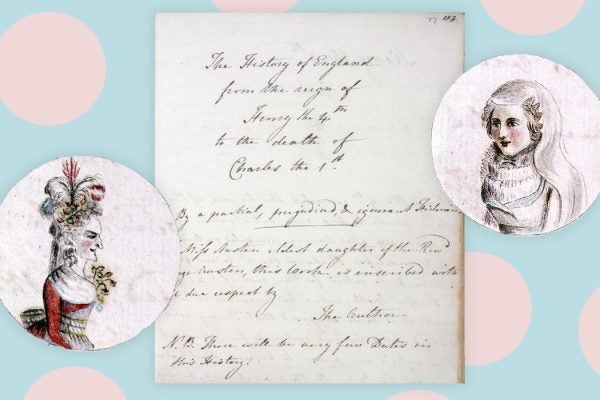 The History of England
from the reign of
Henry the 4th
to the death of
Charles the 1st.
By a partial, prejudiced, & ignorant Historian
Miss Austen eldest daughter of the Revd
Austen, this Work is inscribed with
due respect by
The Author
N.B. There will be very few Dates in
this History.